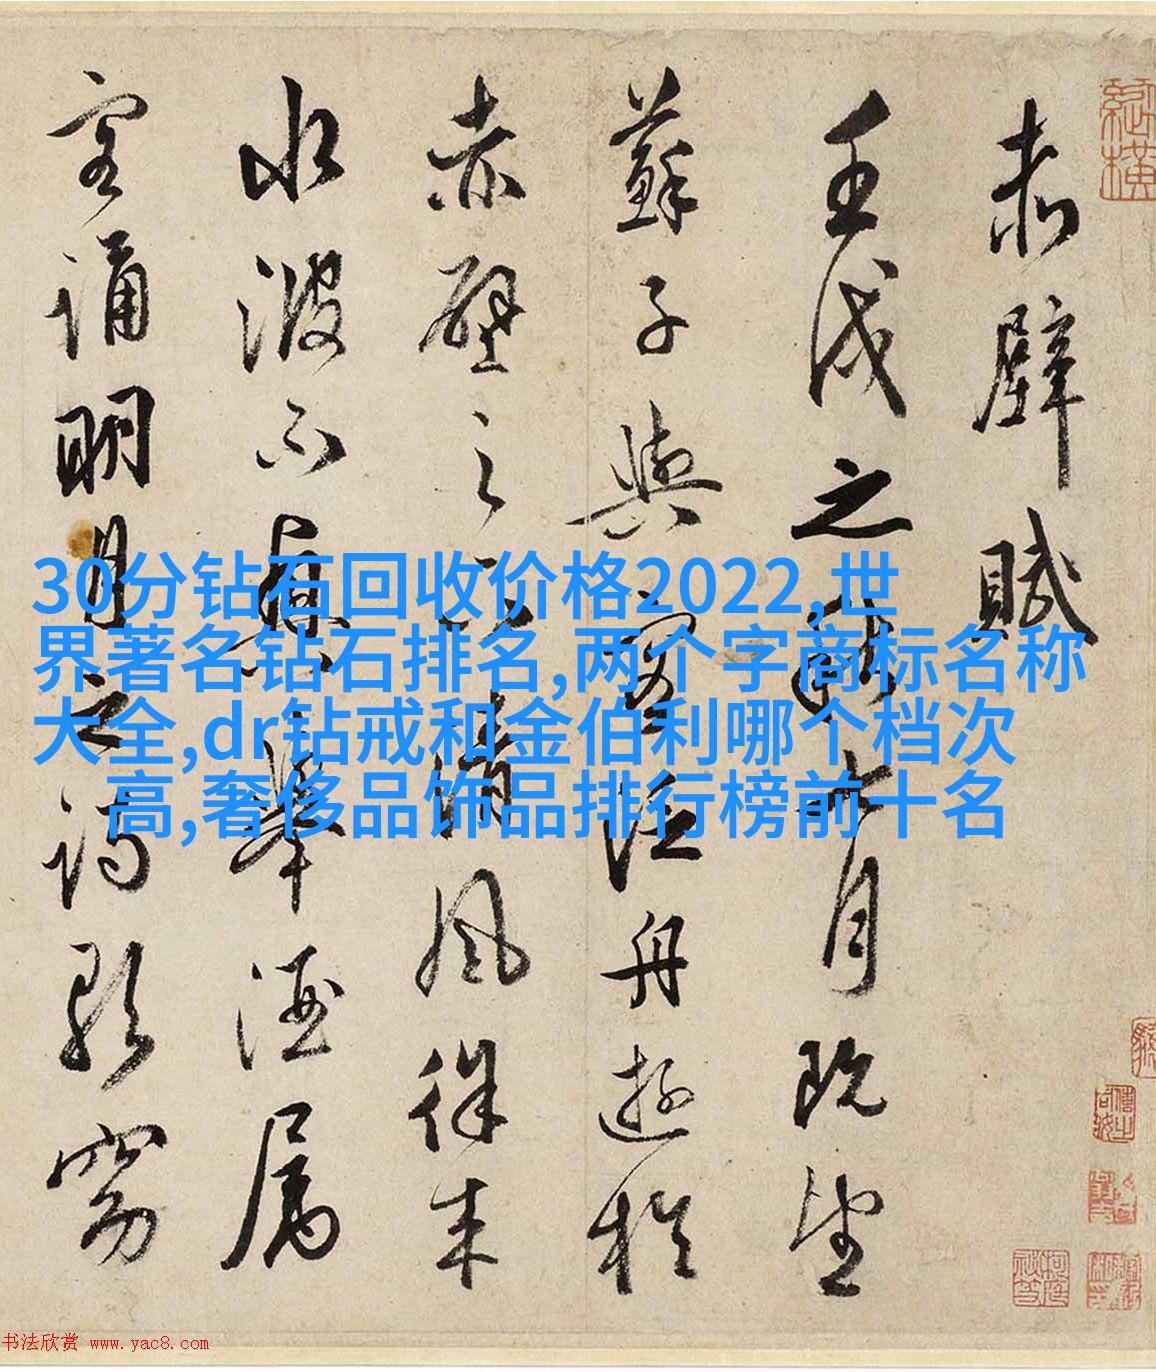 赤壁賦
壬戌之秋七月既望
蘇子與客泛舟遊於
赤壁之下清風徐来
水波不興舉酒属
客誦明月之詩歌窈
30分钻石回收价格2022,世
界著名钻石排名,两个字商标名称
大全,dr钻戒和金伯利哪个档次
高,奢侈品饰品排行榜前十名
书法欣赏 www.yac8.com